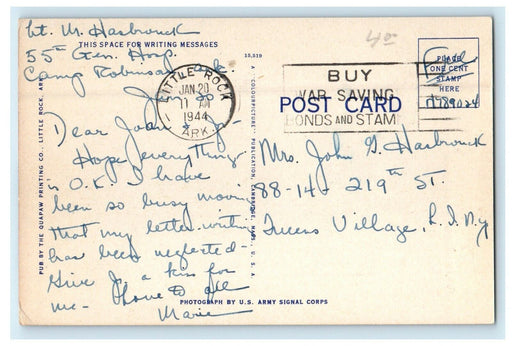 Lt. M. Hasbrouck
THIS SPACE FOR WRITING MESSAGES
55th Gen. Hosp.
Camp Robinson, Ark.
Jan 20
Dear John &
Hope everything
is O.K. I have
been so busy moving
that my letter writing
has been neglected-
Give Jr. a kiss for
me- Love to all
Marie
PUB BY THE QUAPAW PRINTING CO., LITTLE ROCK, ARK.
10,519
"COLOURPICTURE" PUBLICATION CAMBRIDGE, MASS., U.S.A.
PHOTOGRAPH BY U.S. ARMY SIGNAL CORPS
LITTLE ROCK
JAN 20
11 AM
1944
ARK.
BUY
WAR SAVING
BONDS AND STAM
POST CARD
40
Free
PLACE
ONE CENT
STAMP
HERE
Mrs. John G. Hasbrouck
88-14-219th St.
Queens Village, L.I. N.Y.